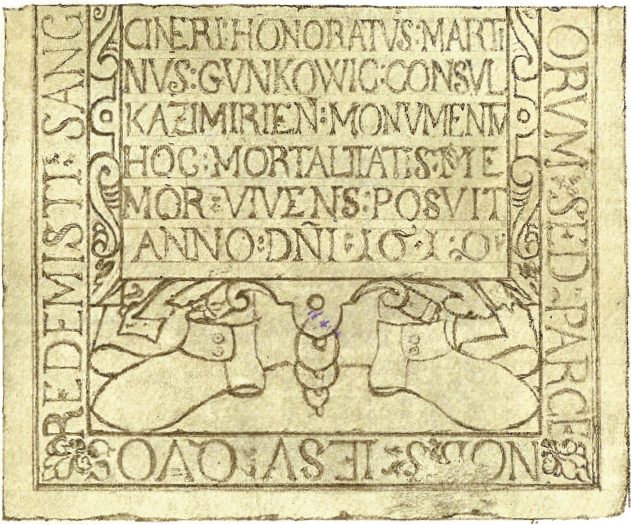 CINERI·HONORATVS·MARTI
NVS:GVNKOWIC:CONSVL
KAZIMIRIEÑ:MONVMENTV
HOC:MORTALITATIS:ME
MOR:VIVENS:POSVIT
ANNO:DÑI:1610
ORVM:SED:PARCE
NOBIS:IESV:QVO
REDEMISTI:SANG